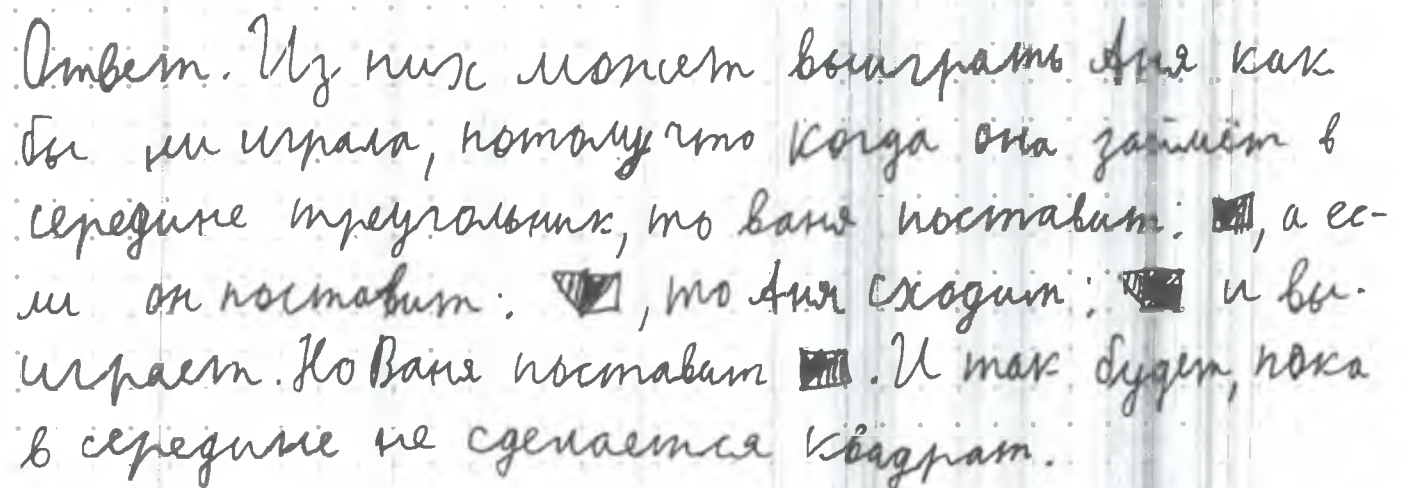 Ответ. Из них может выиграть Аня как
бы ни играла, потому что когда она займёт в
середине треугольник, то Ваня поставит: , а ес-
ли он поставит: , то Аня сходит: и вы-
играет. Но Ваня поставит . И так будет, пока
в середине не сделается квадрат.